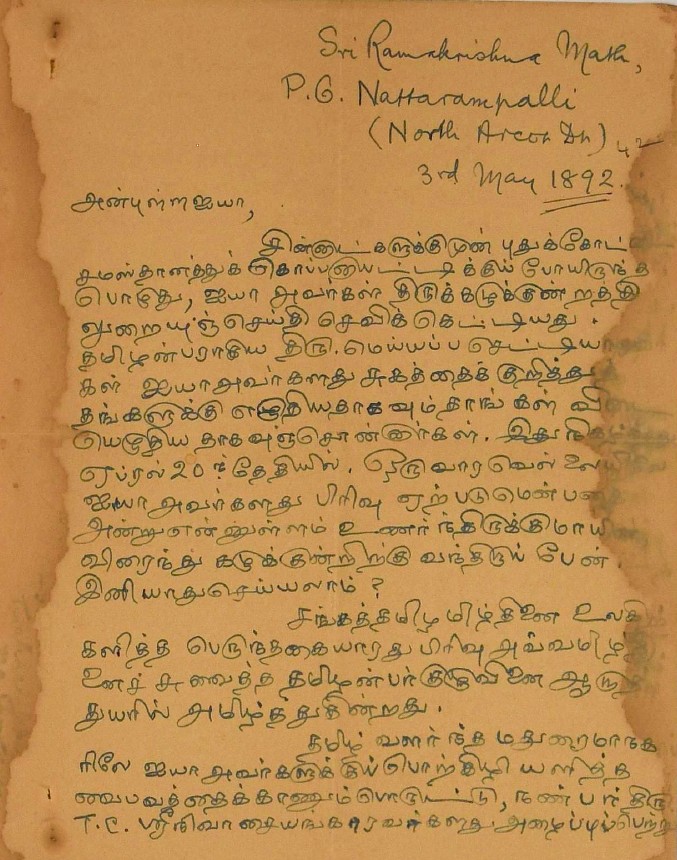 Sri Ramakrishna Math,
P.O. Nattarampalli
(North Arcot Dt)
3rd May 1892.
42
அன்புள்ள ஐயா,
சின்னாட்களுக்குமுன் புதுக்கோட்
சமஸ்தானத்துக் கொப்பனாபட்டிக்குப் போயிருந்த
பொழுது, ஐயா அவர்கள் திருக்கழுக்குன்றத்தி
லுறையுஞ்செய்தி செவிக்கெட்டியது.
தமிழன்பராகிய திரு. மெய்யப்ப செட்டியா
கள் ஐயாஅவர்களது சுகத்தைக் குறித்து
தங்களுக்கு எழுதியதாகவும் தாங்கள்
யெழுதியதாகவுஞ்சொன்னார்கள். இது
ஏப்ரல் 20ந்தேதியில். ஒருவார
ஐயா அவர்களது பிரிவு ஏற்படுமென்ப
அன்று என்னுள்ளம் உணர்ந்திருக்குமாயி
விரைந்து கழுக்குன்றிற்கு வந்திருப்பேன்.
இனியாதுசெய்யலாம்?
சங்கத்தமிழமிழ்தினை உலகி
களித்த பெருந்தகையாரது பிரிவு அவ்வமிழ்
தினைச் சுவைத்த தமிழன்பர் குழுவினை ஆருத்
துயரில் அமிழ்த்துகின்றது.
தமிழ் வளர்ந்த மதுரைமாநக
ரிலே ஐயா அவர்களுக்குப் பொற்கிழி யளித்த
வைபவத்தைக்காணும்பொருட்டு, நண்பர் திரு
T.C. ஸ்ரீநிவாஸையங்காரவர்களது அழைப்புப்பெற்று